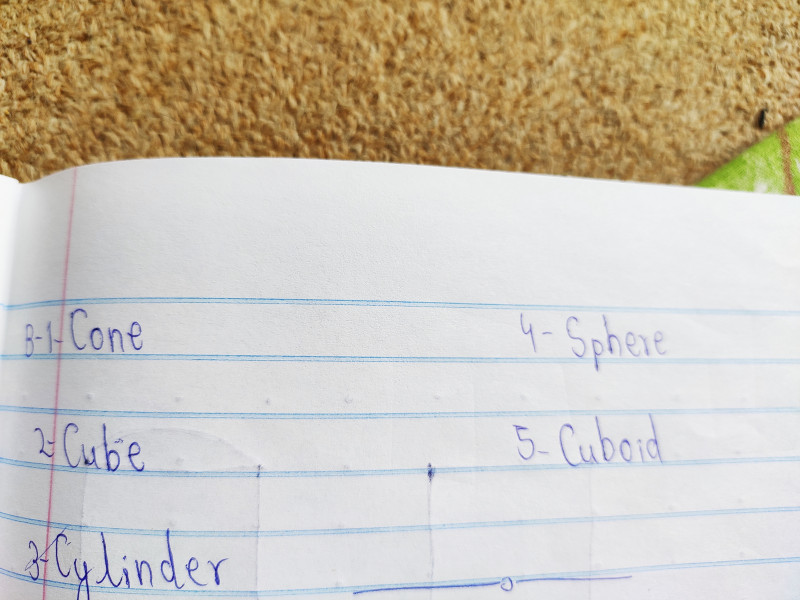 B-1- Cone
2- Cube
3- Cylinder
4- Sphere
5- Cuboid